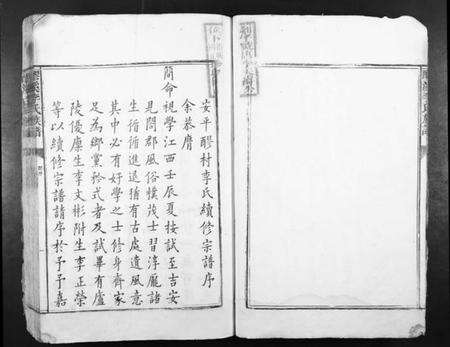 安平醪村李氏續修宗譜序
余恭膺
簡命視學江西壬辰夏按試至吉安
見問郡風俗樸茂士習淳龐諸
生循循進退猶有古處遺風意
其中必有好學之士修身齊家
足為鄉黨矜式者及試畢有廬
陵優廩生李文彬附生李正榮
等以續修宗譜請序於予予嘉